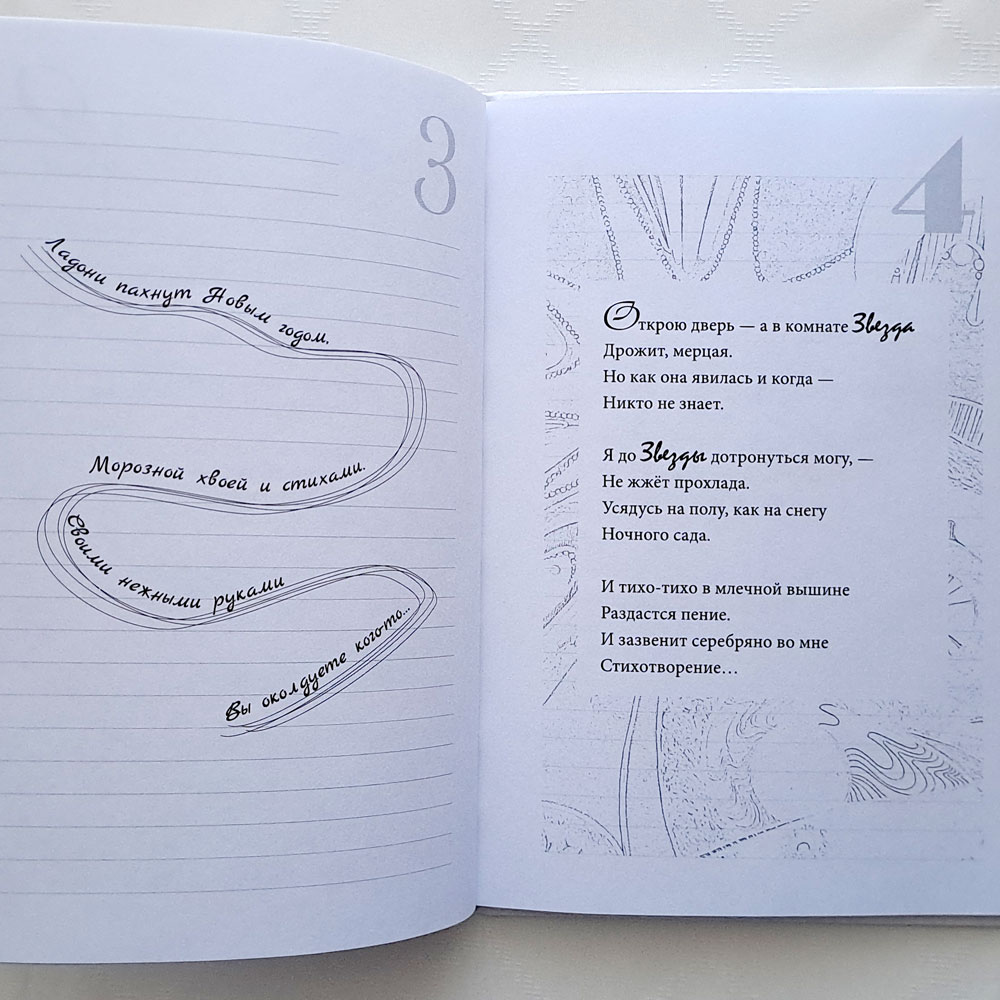 3
Ладони пахнут Новым годом,
Морозной хвоей и стихами.
Своими нежными руками
Вы околдуете кого-то...
4
Открою дверь — а в комнате Звезда
Дрожит, мерцая.
Но как она явилась и когда —
Никто не знает.
Я до Звезды дотронуться могу, —
Не жжёт прохлада.
Усядусь на полу, как на снегу
Ночного сада.
И тихо-тихо в млечной вышине
Раздастся пение.
И зазвенит серебряно во мне
Стихотворение…